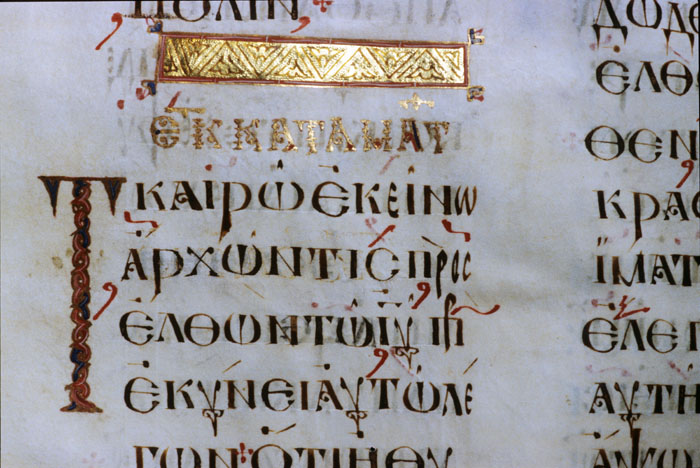 ΠΟΛΙΝ
ΚΑΤΑΜΑΤ
Τ ΚΑΙΡΩ ΕΚΕΙΝΩ
ΑΡΧΩΝ ΤΙϹ ΠΡΟϹ
ΕΛΘΩΝ ΤΩ ΙΥ
ΕΚΥΝΕΙ ΑΥΤΩ ΛΕ
ΓΩΝ ΟΤΙ Η ΘΥ
ΔΩΔ
ΕΛΘ
ΘΕΝ
ΚΡΑϹ
ΪΜΑΤ
ΕΛΕΓ
ΑΥΤΗ